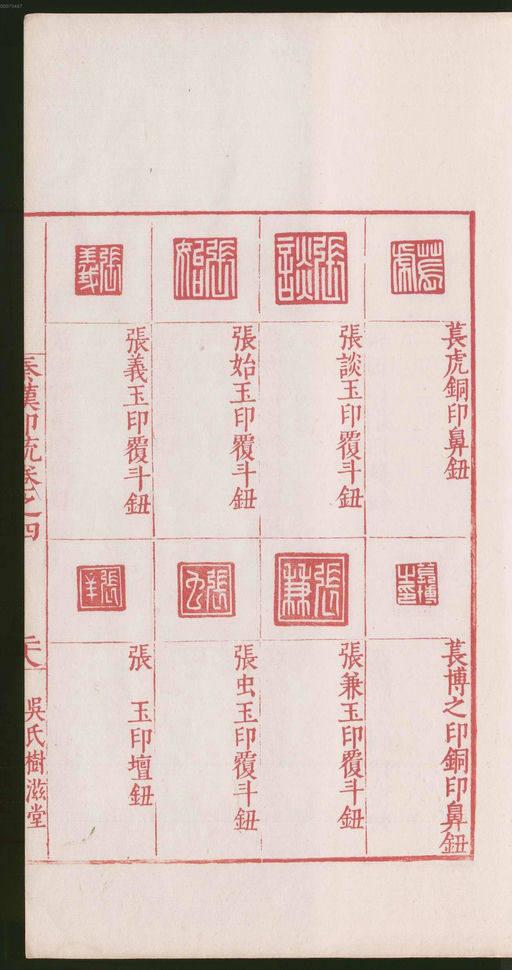 萇虎銅印鼻鈕
張談玉印覆斗鈕
張始玉印覆斗鈕
張義玉印覆斗鈕
萇博之印銅印鼻鈕
張兼玉印覆斗鈕
張虫玉印覆斗鈕
張 玉印壇鈕
秦漢印統卷之四
吳氏樹滋堂
00073467